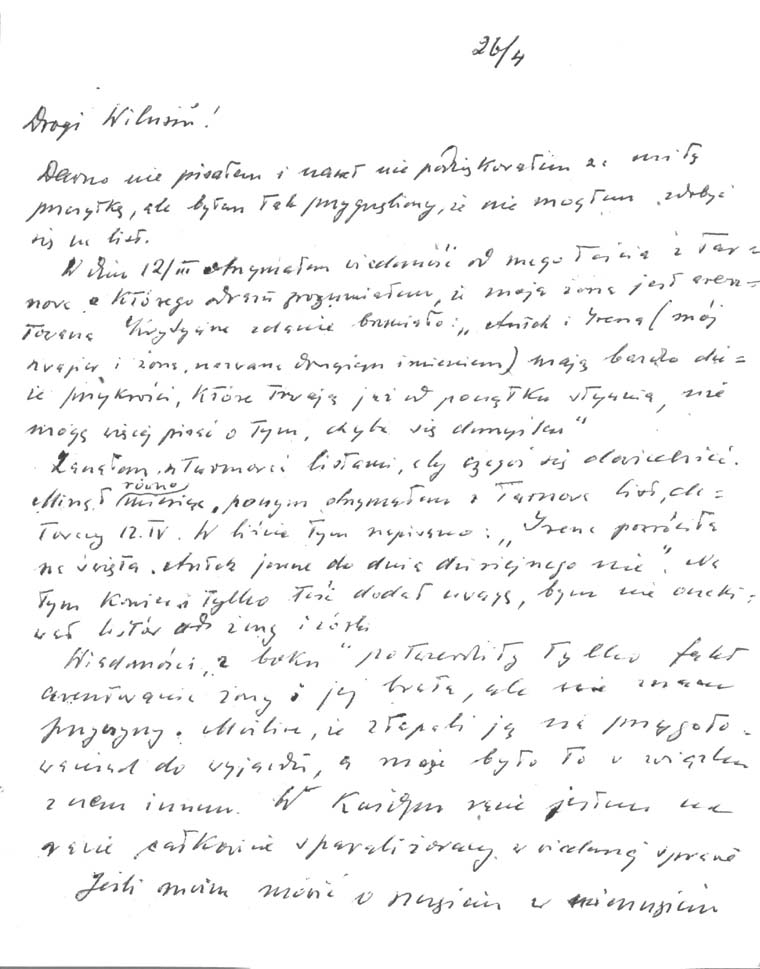 26/4
Drogi Wilusiu!
Dawno nie pisałem i nawet nie podziękowałem za miłą
przesyłkę, ale byłem tak przygnębiony, że nie mogłem zdobyć
się na list.
W dniu 12/III otrzymałem wiadomość od mego teścia z Tar=
nowa z którego odrazu zrozumiałem, że moja żona jest aresz=
towana. Krytyczne zdanie brzmiało: „Antek i Irena (mój
szwagier i żona, nazwana drugiem imieniem) mają bardzo du=
że przykrości, które trwają już od początku stycznia, nie
mogę więcej pisać o tym, chyba się domyślasz"
Zacząłem listami, aby czegoś się dowiedzieć.
Minął równo miesiąc, ponownie otrzymałem z Tarnowa list, da=
towany 12.IV. W liście tym napisano: „Irena powróciła
na święta. Antek jeszcze do dnia dzisiejszego nie". Na
tym koniec i tylko teść dodał uwagę, bym nie oczeki=
wał listów od żony i córki
Wiadomości „z boku" potwierdziły tylko fakt
aresztowania żony i jej brata, ale nie znam
przyczyny. Możliwe, że złapali ją na przygoto=
waniach do wyjazdu, a może było to w związku
z czem innem. W każdym razie jestem na
razie całkowicie sparaliżowany w wiadomej sprawie
Jeśli można mówić o szczęściu w nieszczęściu